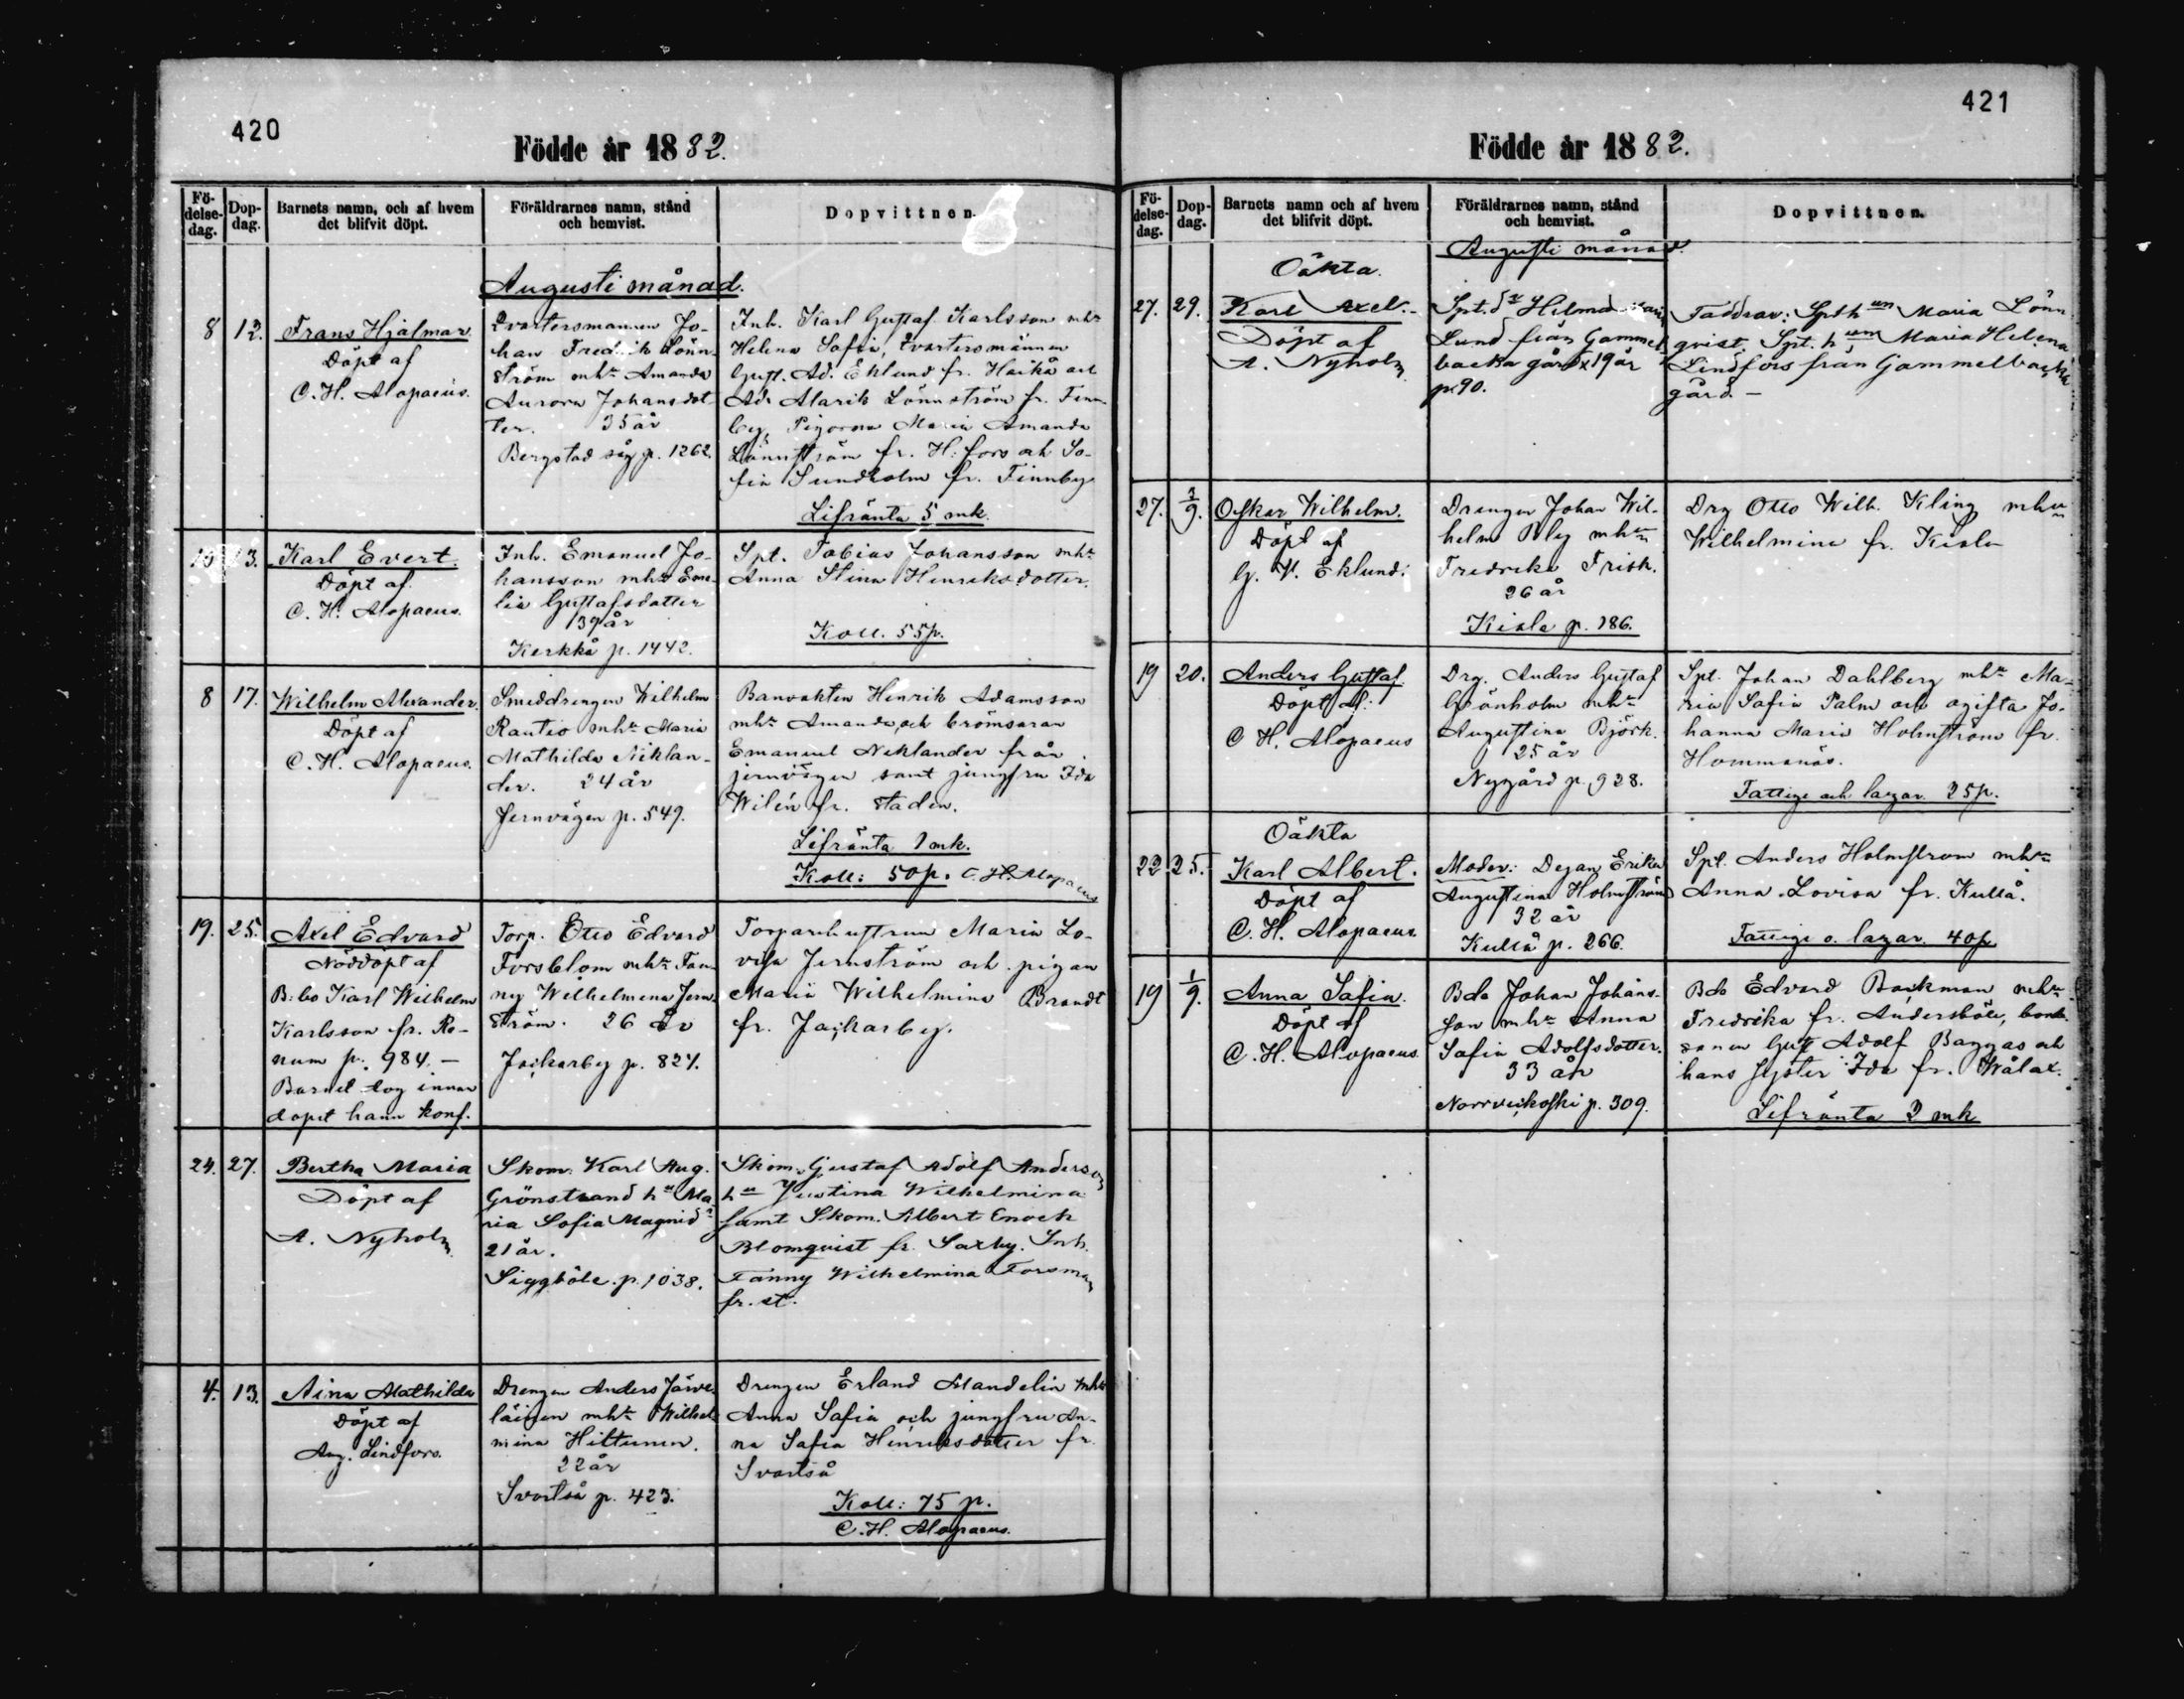 420
Födde år 1882.
Fö-
delse-
dag.
Dop-
dag.
Barnets namn, och af hvem
det blifvit döpt.
Föräldrarnes namn, stånd
och hemvist.
Dopvittnen.
Augusti månad.
8
12.
Frans Hjalmar
Döpt af
C. H. Alopaeus.
Qvartersmannen Jo-
han Fredrik Lönn-
ström mhu Amanda
Aurora Johansdot-
ter. 35 år
Bergstad såg p. 1262.
Inh. Karl Gustaf Karlsson mhu
Helena Sofia, Qvartersmännen
Gust. Ad. Eklund fr. Haikå och
Ad. Alarik Lönnström fr. Finn-
by, Pigorna Maria Amanda
Lönnström fr. H:fors och So-
fia Sundholm fr. Finnby
Lifränta 5 mk.
13.
Karl Evert.
Döpt af
C. H. Alopaeus.
Inh. Emanuel Jo-
hansson mhu Emi-
lia Gustafsdotter
39 år
Kerkkå p. 1442.
Spt. Tobias Johansson mhu
Anna Stina Henriksdotter.
Koll. 55 p.
8
17.
Wilhelm Alexander.
Döpt af
C. H. Alopaeus.
Smeddrengen Wilhelm
Rautio mhu Maria
Mathilda Niklan-
der. 24 år
Jernvägen p. 549.
Banvakten Henrik Adamsson
mhu Amanda, och bromsaren
Emanuel Niklander från
jernvägen samt jungfru Ida
Wilén fr. staden.
Lifränta 1 mk.
Koll: 50 p. C. H. Alopaeus
19.
25.
Axel Edvard
Nöddöpt af
B:bo Karl Wilhelm
Karlsson fr. Ro-
num p. 984. —
Barnet dog innan
dopet hann konf.
Torp. Otto Edvard
Forsblom mhu Fan-
ny Wilhelmina Jern-
ström. 26 år
Jackarby p. 827.
Torparehustrun Maria Lo-
visa Jernström och pigan
Maria Wilhelmina Brandt
fr. Jackarby.
24.
27.
Bertha Maria
Döpt af
A. Nyholm
Skom. Karl Aug.
Grönstrand hu Ma-
ria Sofia Magnidr
21 år.
Siggböle p. 1038.
Skom. Gustaf Adolf Anderson
hu Justina Wilhelmina
samt Skom. Albert Enoch
Blomqvist fr. Saxby. Inh.
Fanny Wilhelmina Forsman
fr. st.
4.
13.
Aina Mathilda
Döpt af
Aug. Lindfors.
Drengen Anders Järve-
läinen mhu Wilhel-
mina Hiltunen.
22 år
Svartså p. 423.
Drengen Erland Mandelin mhu
Anna Sofia och jungfru An-
na Sofia Henriksdotter fr.
Svartså
Koll: 75 p.
C. H. Alopaeus.
421
Födde år 1882.
Fö-
delse-
dag.
Dop-
dag.
Barnets namn och af hvem
det blifvit döpt.
Föräldrarnes namn, stånd
och hemvist.
Dopvittnen.
Augusti månad.
Oäkta.
27.
29.
Karl Axel.
Döpt af
A. Nyholm
Spt.dr Hilma
Lund från Gammel-
backa gård 19 år
p. 90.
Faddrar: Spth un Maria Lönn-
qvist, Spt. h un Maria Helena
Lindfors från Gammelbacka
gård. —
27.
3/9.
Oskar Wilhelm.
Döpt af
G. V. Eklund.
Drengen Johan Wil-
helm Bly mhu
Fredrika Frisk.
26 år
Kiala p. 186.
Drg Otto Wilh. Kling mhu
Wilhelmina fr. Kiala
19
20.
Anders Gustaf
Döpt af
C. H. Alopaeus
Drg. Anders Gustaf
Grönholm mhu
Augustina Björk.
25 år
Nygård p. 928.
Spt. Johan Dahlberg mhu Ma-
ria Sofia Palm och ogifta Jo-
hanna Maria Holmström fr.
Hommanäs.
Fattige och lazar. 25 p.
Oäkta
22.
25.
Karl Albert.
Döpt af
C. H. Alopaeus
Moder: Dejan Erika
Augustina Holmström
32 år
Kullå p. 266.
Spt. Anders Holmström mhu
Anna Lovisa fr. Kullå.
Fattige o. lazar. 40 p.
19
1/9.
Anna Sofia.
Döpt af
C. H. Alopaeus
Bdo Johan Johans-
son mhu Anna
Sofia Adolfsdotter.
33 år
Norrveckoski p. 309.
Bdo Edvard Backman mhu
Fredrika fr. Andersböle, bonde-
sonen Gust Adolf Baggas och
hans syster Ida fr. Wålax.
Lifränta 2 mk